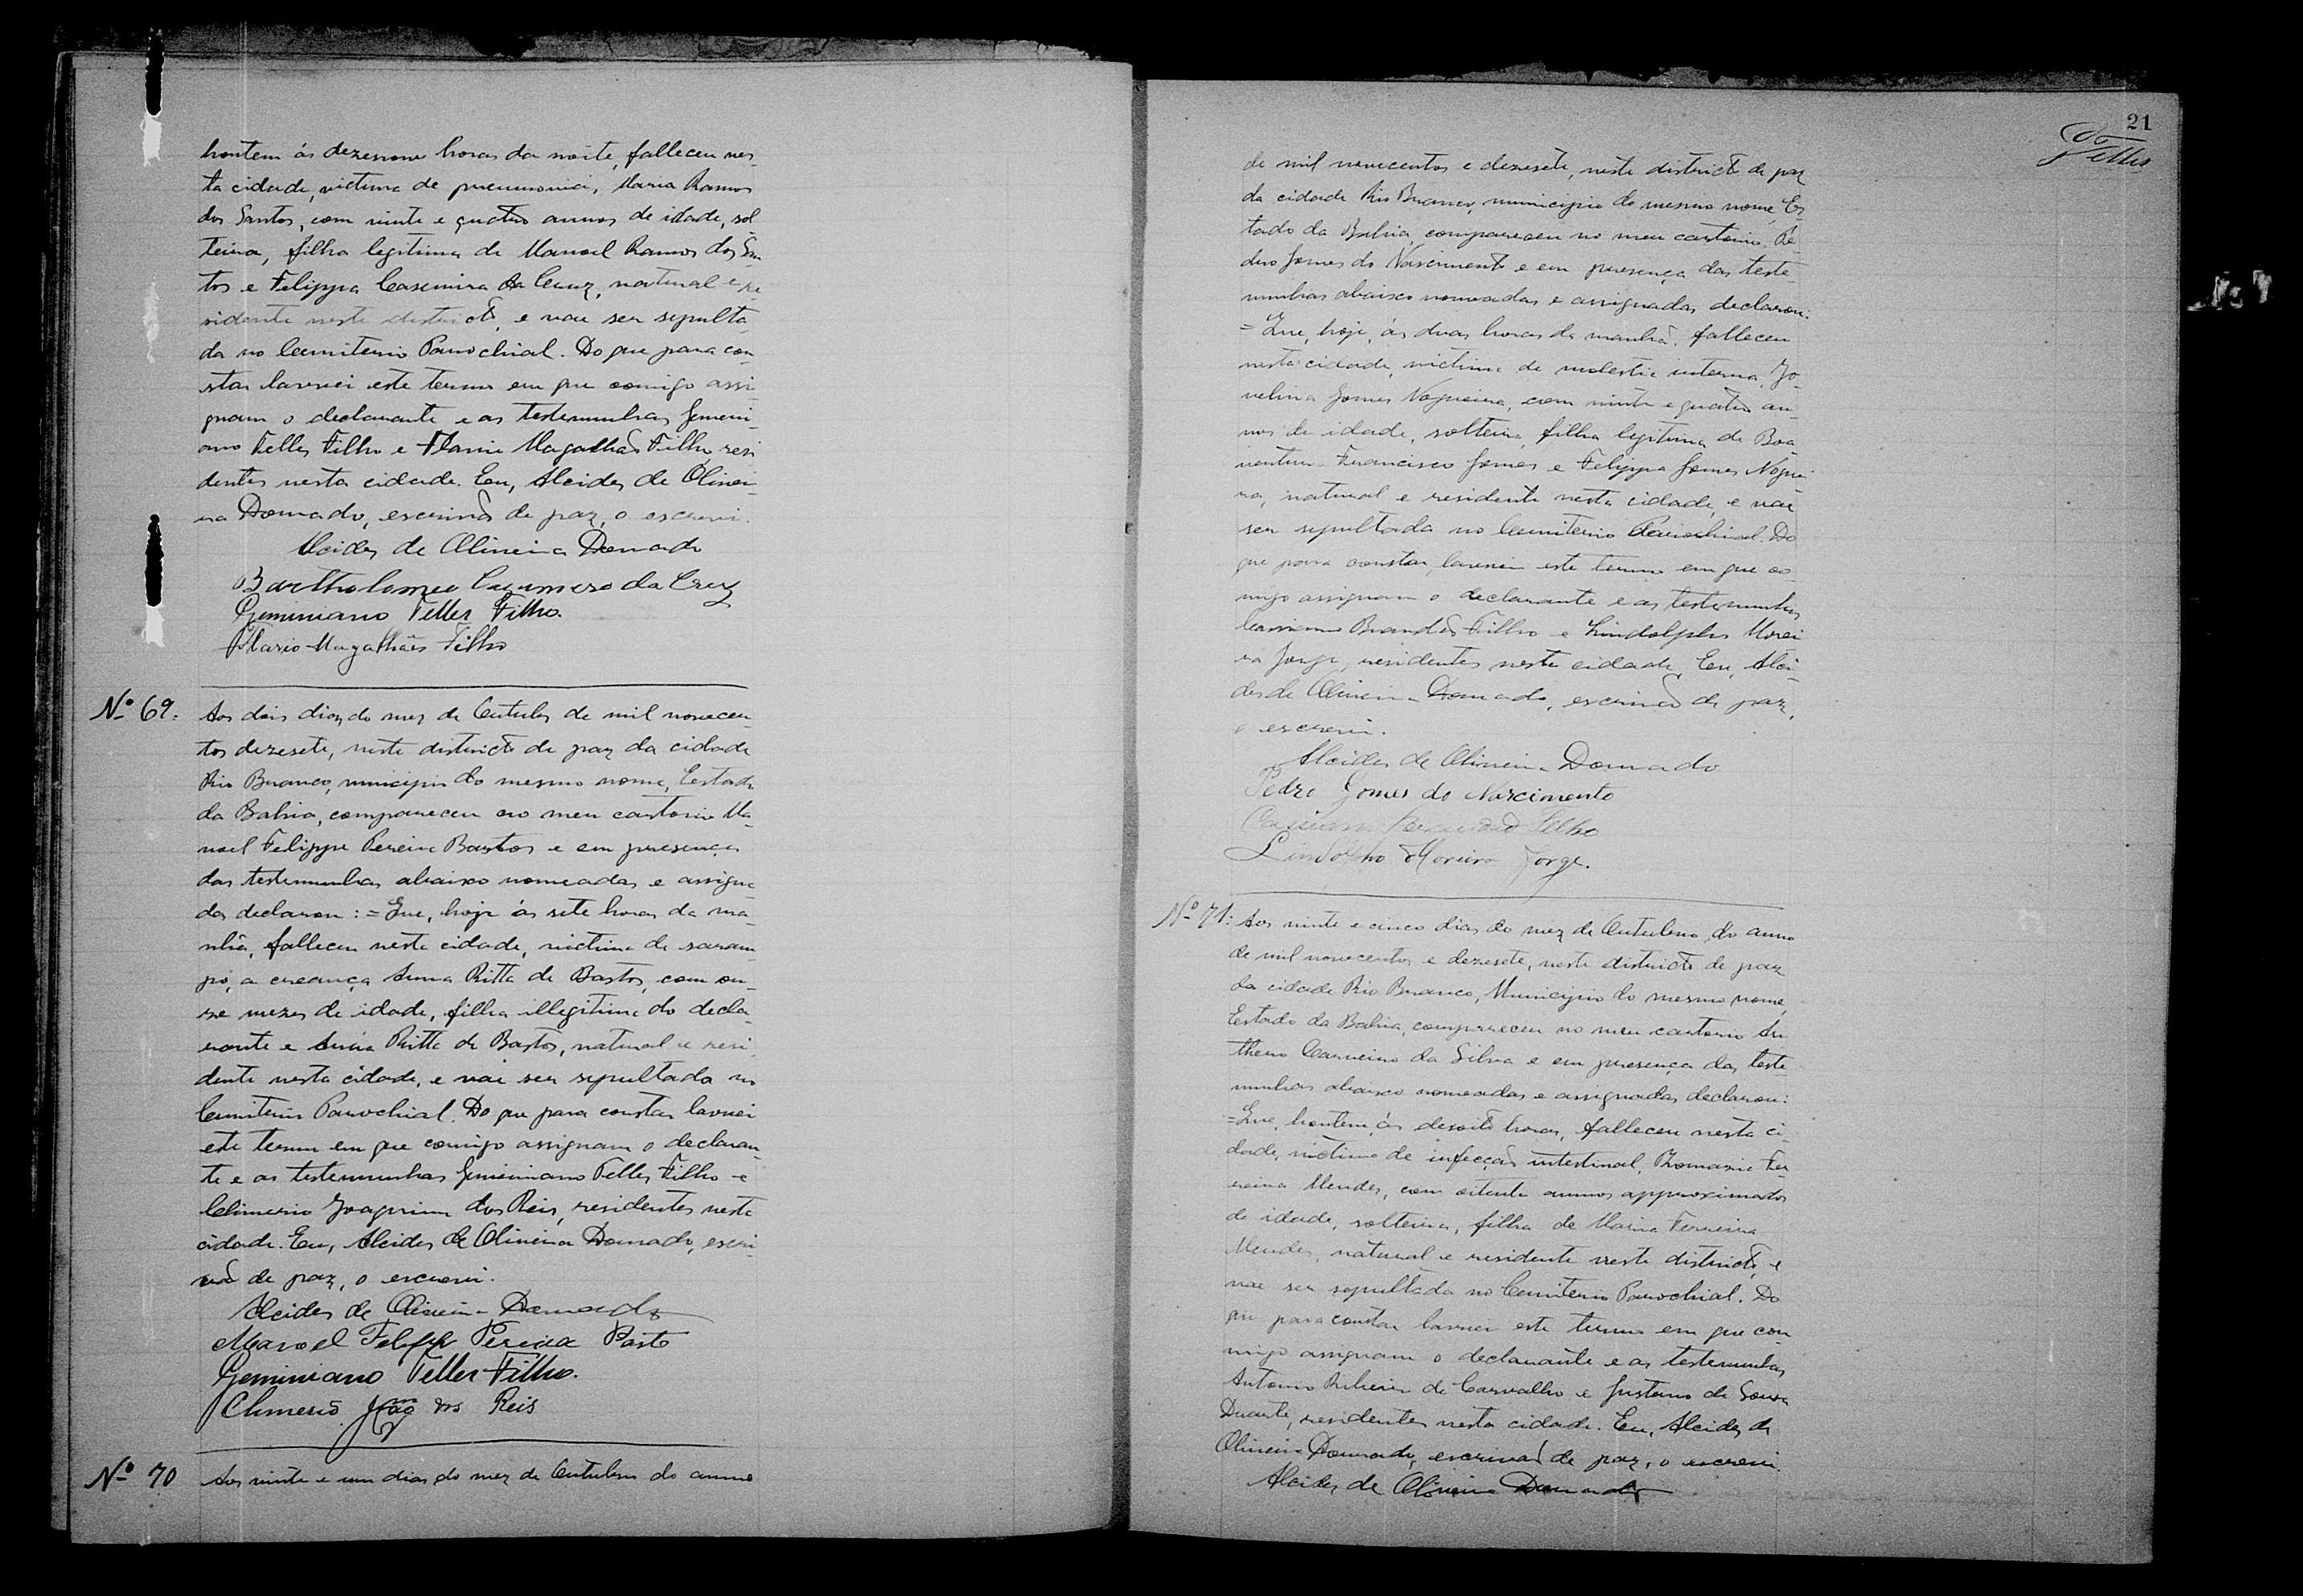 hontem ás dezenove horas da noite, falleceu nes-
ta cidade, victima de pneumonia, Maria Ramos
dos Santos, com vinte e quatro annos de idade, sol
teira, filha legitima de Manoel Ramos dos San
tos e Felippa Casemira da Cruz, natural e re
sidente neste districto, e vae ser sepulta
da no Cemiterio Parochial. Do que para con
star lavrei este termo em que comigo assi
gnam o declarante e as testemunhas Gemini
ano Telles Filho e Flavio Magalhães Filho, resi
dentes nesta cidade. Eu, Alcides de Olivei-
ra Dourado, escrivão de paz, o escrevi.
Alcides de Oliveira Dourado
Bartholomeo Casimero da Cruz
Geminiano Telles Filho.
Flavio Magalhães Filho
Nº 69. Aos dois dias do mez de Outubro de mil novecen
tos dezesete, neste districto de paz da cidade
Rio Branco, municipio do mesmo nome, Estado
da Bahia, compareceu no meu cartorio Ma-
noel Felippe Pereira Bastos e em presença
das testemunhas abaixo nomeadas e assigna
das declarou: = Que, hoje ás sete horas da ma-
nhã, falleceu nesta cidade, victima de saram
po, a creança Anna Ritta de Bastos, com on-
ze mezes de idade, filha illegitima do decla-
rante e Ritta de Bastos, natural e resi-
dente nesta cidade, e vai ser sepultada no
Cemiterio Parochial. Do que para constar lavrei
este termo em que comigo assignam o declaran
te e as testemunhas Geminiano Telles Filho e
Climerio Joaquim dos Reis, residentes nesta
cidade. Eu, Alcides de Oliveira Dourado, escri-
vão de paz, o escrevi.
Alcides de Oliveira Dourado
Manoel Felippe Pereira Basto
Geminiano Telles Filho.
Climerio dos Reis
Nº 70 Aos vinte e um dias do mez de Outubro do anno
21
Telles
de mil novecentos e dezesete, neste districto de paz
da cidade Rio Branco, municipio do mesmo nome, Es
tado da Bahia, compareceu no meu cartorio, Pe
dro Gomes do Nascimento e em presença das teste
munhas abaixo nomeadas e assignadas, declarou:
= Que, hoje, ás duas horas da manhã, falleceu
nesta cidade, victima de molestia interna, Jo-
velina Gomes Nogueira, com vinte e quatro an-
nos de idade, solteira, filha legitima de Boa
ventura Francisco Gomes e Felippa Gomes Noguei
ra, natural e residente nesta cidade, e vae
ser sepultada no Cemiterio Parochial. Do
que para constar, lavrei este termo em que co-
migo assignam o declarante e as testemunhas
Cassiano Brandão Filho e Lindolpho Morei
ra Jorge, residentes nesta cidade. Eu, Alci-
des de Oliveira Dourado, escrivão de paz,
o escrevi.
Alcides de Oliveira Dourado
Pedro Gomes do Nascimento
Cassiano Brandão Filho
Lindolpho Moreira Jorge.
Nº 71: Aos vinte e cinco dias do mez de Outubro do anno
de mil novecentos e dezesete, neste districto de paz
da cidade Rio Branco, Municipio do mesmo nome,
Estado da Bahia, compareceu no meu cartorio An
thero Carneiro da Silva e em presença das teste
munhas abaixo nomeadas e assignadas declarou:
= Que, hontem, ás desoito horas, falleceu nesta ci-
dade, victima de infecção intestinal, Romana Fer
reira Mendes, com oitenta annos approximados
de idade, solteira, filha de Maria Ferreira
Mendes, natural e residente neste districto, e
vae ser sepultada no Cemiterio Parochial. Do
que para constar lavrei este termo em que com
migo assignam o declarante e as testemunhas
Antonio Ribeiro de Carvalho e Gustavo de Souza
Duarte, residentes nesta cidade. Eu, Alcides de
Oliveira Dourado, escrivão de paz, o escrevi.
Alcides de Oliveira Dourado